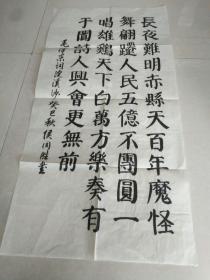 長夜難明赤縣天百年魔怪
舞翩躚人民五億不團圓一
唱雄鷄天下白萬方樂奏有
于闐詩人興會更無前
毛泽東詞浣溪沙癸巳秋侯同勝書